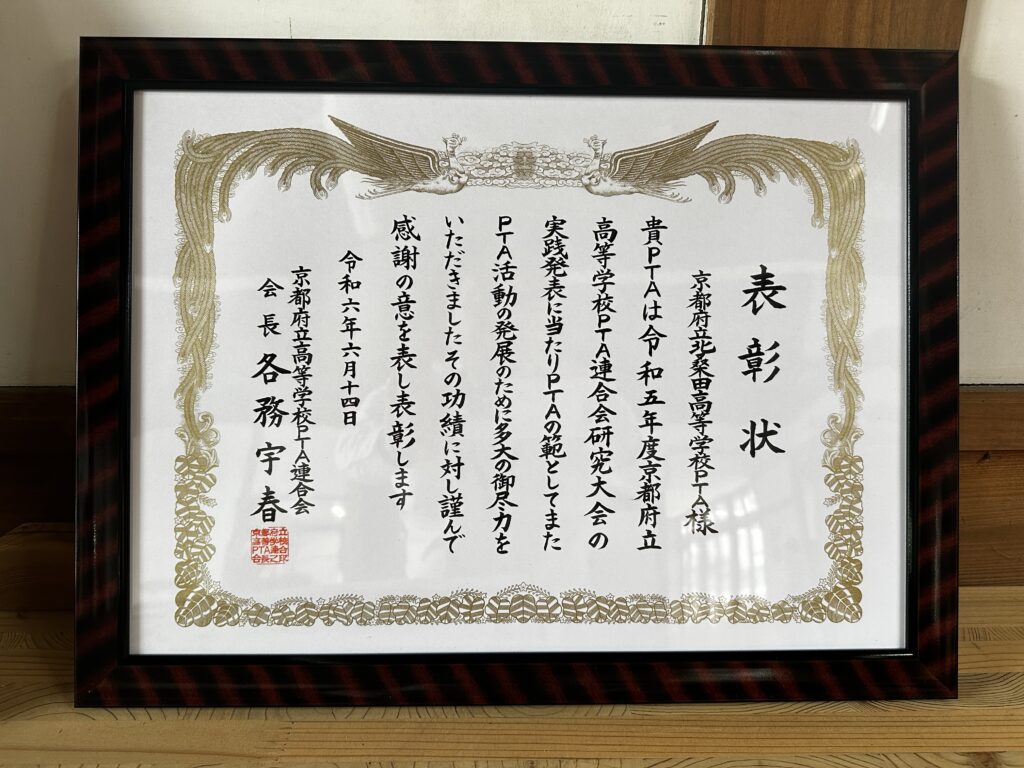 表彰状
京都府立北桑田高等学校PTA様
貴PTAは令和五年度京都府立
高等学校PTA連合会研究大会の
実践発表に当たりPTAの範としてまた
PTA活動の発展のために多大の御尽力を
いただきましたその功績に対し謹んで
感謝の意を表し表彰します
令和六年六月十四日
京都府立高等学校PTA連合会
会長各務宇春